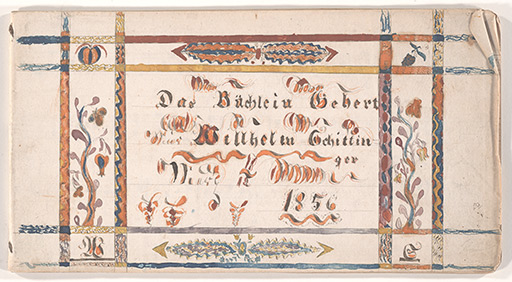 Das Büchlein Gehert
Willhelm Tchittin
ger
1856